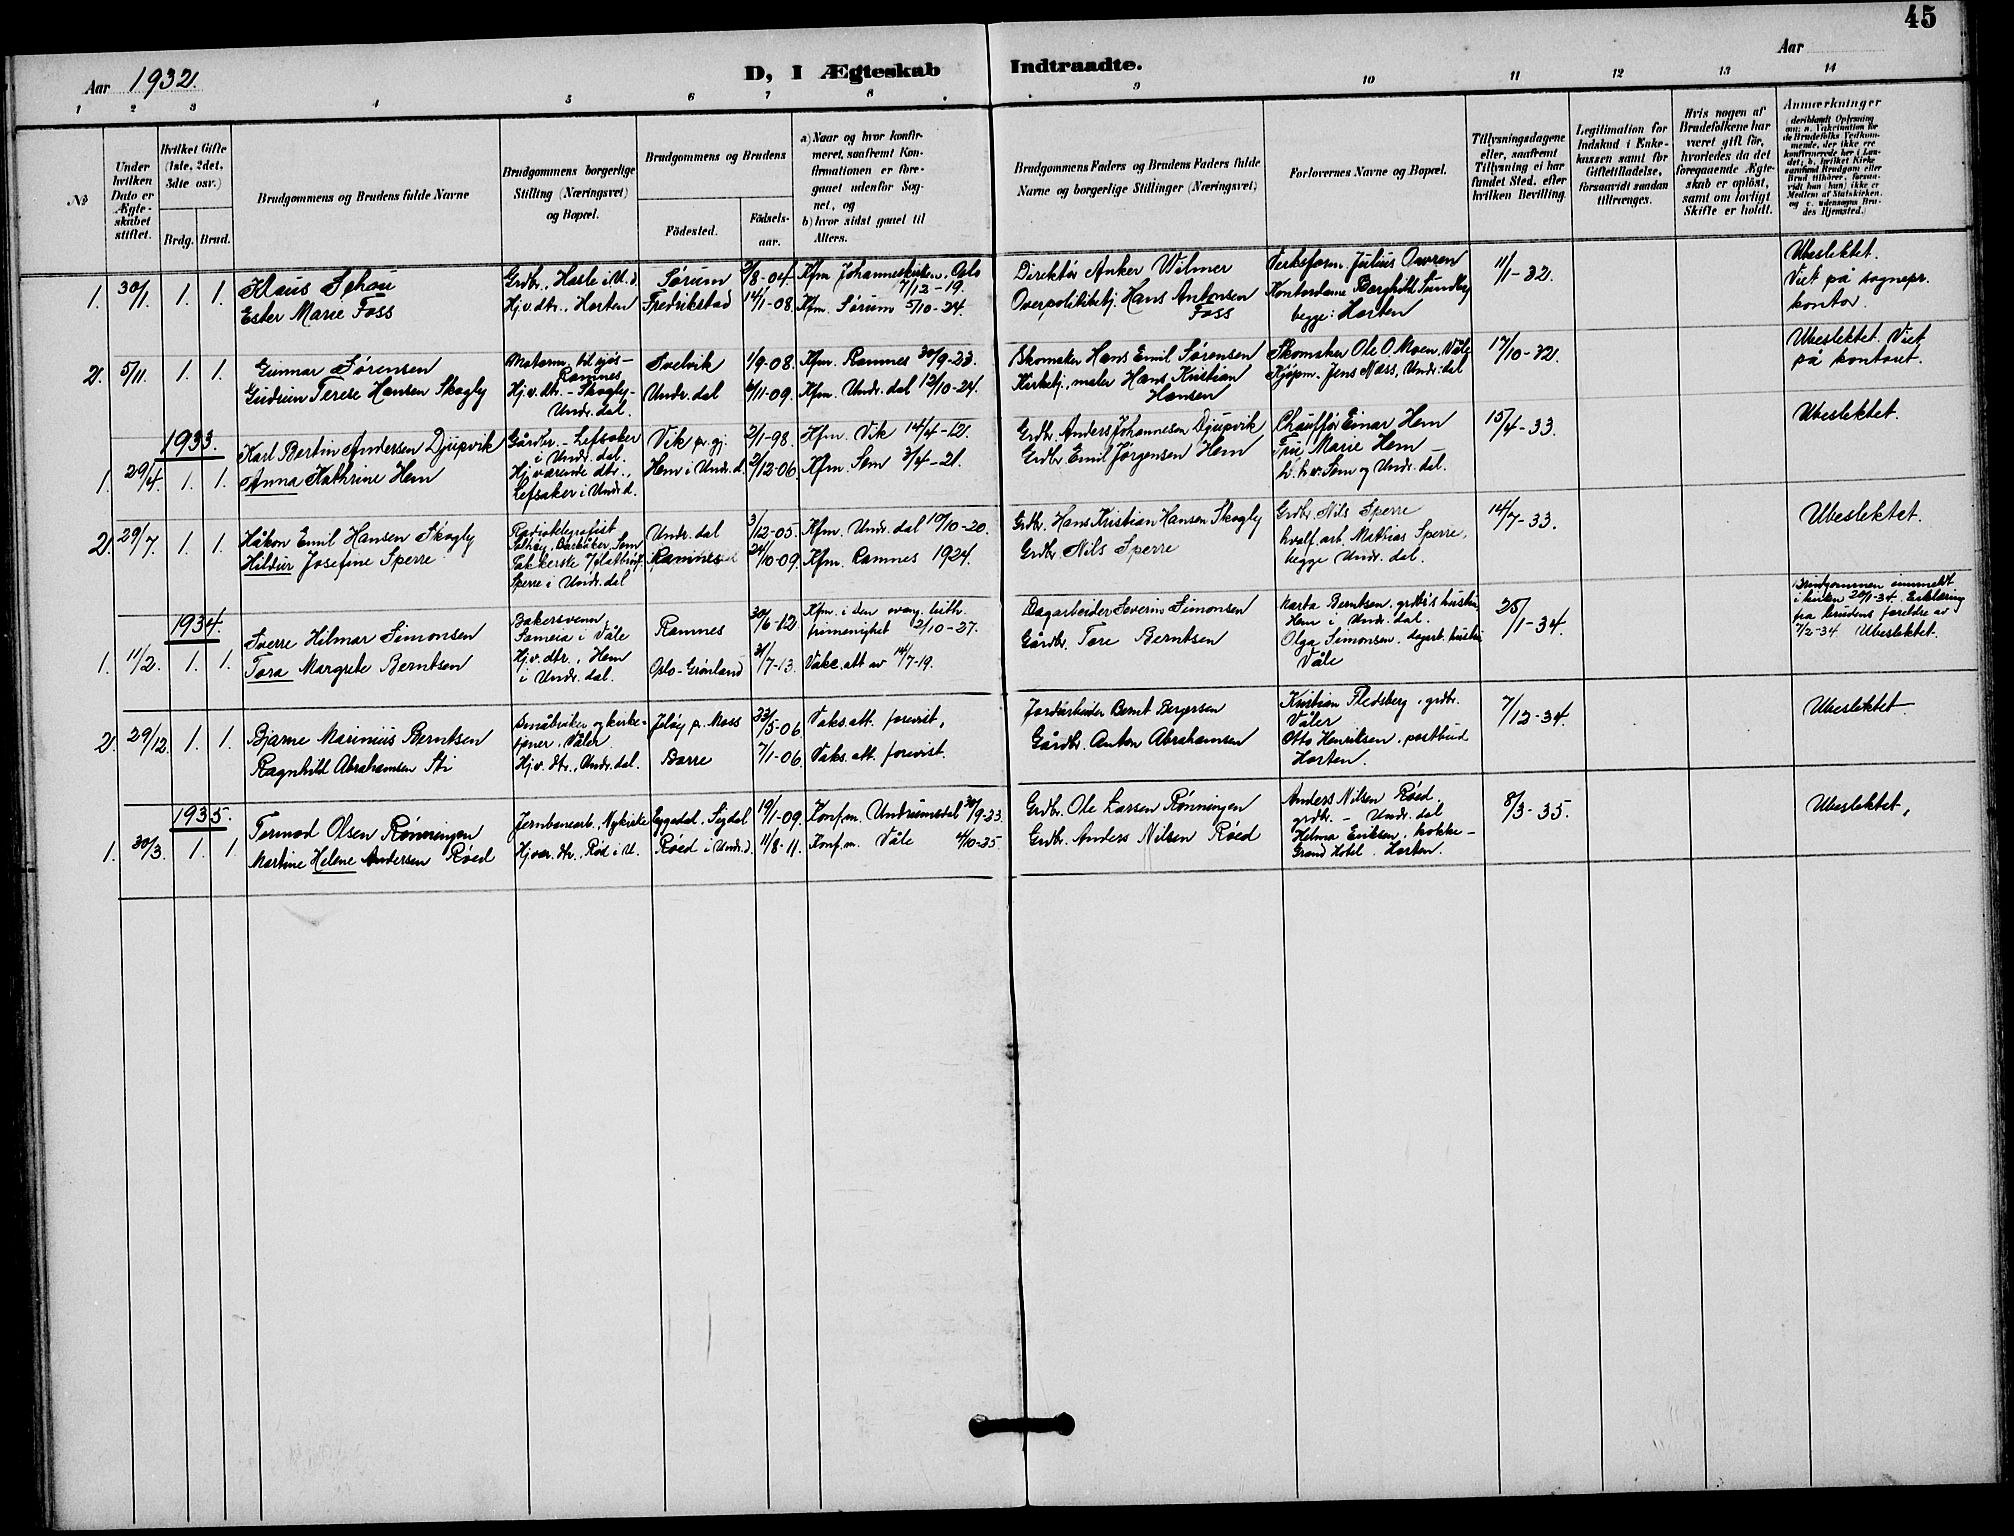 45
Aar 1932.
D, I Ægteskab Indtraadte.
Aar
1 2 3 4 5 6 7 8 9 10 11 12 13 14
No
Under hvilken Dato er Ægteskabet stiftet.
Hvilket Gifte (1ste, 2det, 3die osv.)
Brdg. Brud.
Brudgommens og Brudens fulde Navne
Brudgommens borgerlige Stilling (Næringsvei) og Bopæl.
Brudgommens og Brudens
Födested.
Födselsaar.
a) Naar og hvor konfirmeret, saafremt Konfirmationen er foregaaet udenfor Sognet, og
b) hvor sidst gaaet til Alters.
Brudgommens Faders og Brudens Faders fulde Navne og borgerlige Stillinger (Næringsvei)
Forlovernes Navne og Bopæl.
Tillysningsdagene eller, saafremt Tillysning ei har fundet Sted, efter hvilken Bevilling.
Legitimation for Indskud i Enkekassen samt for Giftetilladelse, forsaavidt saadan tiltrænges.
Hvis nogen af Brudefolkene har været gift för, hvorledes da det foregaaende Ægteskab er oplöst, samt om lovligt Skifte er holdt.
Anmærkninger
(deriblandt Oplysning om: a. Vakcination for de Brudefolks Vedkommende, der ikke ere konfirmerede her i Landet; b. hvilket Kirkesamfund Brudgom eller Brud tilhörer, forsaavidt han (hun) ikke er Medlem af Statskirken, og c. udensogns Brudes Hjemsted.)
1. 30/1. 1. 1. Klaus Schou
Ester Marie Foss
Grdbr., Hasle i U.d.
Hjv.dtr., Horten
Sørum 2/8-04.
Fredrikstad 14/1-08.
Kfm. Johanneskirken, Oslo 7/12-19.
Kfm. Sørum 5/10-24.
Direktør Anker Wilmer
Overpolitibetj. Hans Antonsen Foss
Verksform. Julius Owren
Kontordame Borghild Sundby
begge: Horten
11/1-32.
Ubeslektet.
Viet på sognepr. kontor.
2. 5/11. 1. 1. Gunnar Sørensen
Gudrun Terese Hansen Skogly
Ramnes
Hjv.dtr. - Skogly - Undr.dal.
Svelvik 1/9-08.
Undr.dal 6/11-09.
Kfm. Ramnes 30/9-23.
Kfm. Undr.dal 12/10-24.
Skomaker Hans Emil Sørensen
Kirketj., maler Hans Kristian Hansen
Skomaker Ole O. Moen, Våle
Kjøpm. Jens Næss, Undr.dal
17/10-32.
Ubeslektet. Viet på kontoret.
1933.
1. 29/4. 1. 1. Karl Bertin Andersen Djupvik
Anna Kathrine Hem
Gårdbr. - Lefsaker i Undr.dal.
Hjværende dtr., Lefsaker i Undr.d.
Vik pr. gj. 2/1-98.
Hem i Undr.d. 2/12-06.
Kfm. Vik 14/4-12.
Kfm. Sem 3/4-21.
Grdbr. Anders Johannesen Djupvik
Grdbr. Emil Jørgensen Hem
Chauffør Einar Hem
Fru Marie Hem -
h.h.v. Sem og Undr.dal.
15/4-33.
Ubeslektet.
2. 29/7. 1. 1. Håkon Emil Hansen Skogly
Hildur Josefine Sperre
Radiotelegrafist
Solhøy, Barkåker, Sem
Pakkerske
Sperre i Undr.dal
Undr.dal 3/12-05.
Ramnes 24/10-09.
Kfm. Undr.dal 10/10-20.
Kfm. Ramnes 1924.
Grdbr. Hans Kristian Hansen Skogly
Grdbr. Nils Sperre
Grdbr. Nils Sperre
hvalf.arb. Mathias Sperre,
begge Undr.dal.
14/7-33.
Ubeslektet.
1934.
1. 11/2. 1. 1. Sverre Hilmar Simonsen
Tora Margrete Berntsen
Bakersvenn,
Sameia i Våle
Hjv.dtr., Hem i Undr.dal.
Ramnes 30/6-12
Oslo-Grønland 31/7-13.
Kfm. i den evang. luth. frimenighet 2/10-27.
Vakc.att av 14/7-19.
Dagarbeider Severin Simonsen
Gårdbr. Tore Berntsen
Marta Berntsen, grdbr's hustru
Hem i Undr.dal.
Olga Simonsen, dagarb. hustru
Våle
25/1-34.
Brudgommen innmeldt i kirken 20/1-34. Erklæring fra brudens foreldre av 7/2-34 Ubeslektet.
2. 29/12. 1. 1. Bjarne Marinius Berntsen
Ragnhild Abrahamsen Sti
Småbruker og kirketjener, Våler
Hjv. dtr., Undr.dal.
Jeløy p. Moss 23/5-06
Borre 7/1-06.
Vaks.att. forevist,
Vaks. att. forevist.
Jordarbeider Bernt Bergersen
Gårdbr. Anton Abrahamsen
Kristian Fledsberg, grdbr.
Våler
Otto Henriksen, postbud
Horten.
7/12-34.
Ubeslektet
1935.
1. 30/3. 1. 1 Tormod Olsen Rønningen
Martine Helene Andersen Røed
Jernbanearb., Nykirke
Hjvær. dtr., Rød i U.
Eggedal, Sigdal 19/1-09.
Røed i Undr.d. 11/8-11.
Konfm. Undrumsdal 30/9-23.
Konfm. Våle 4/10-25.
Grdbr. Ole Larsen Rønningen
Grdbr. Anders Nilsen Røed
Anders Nilsen Røed.
grdbr. - Undr.dal
Helma Eriksen, kokke -
Grand Hotel, Horten.
8/3-35.
Ubeslektet,